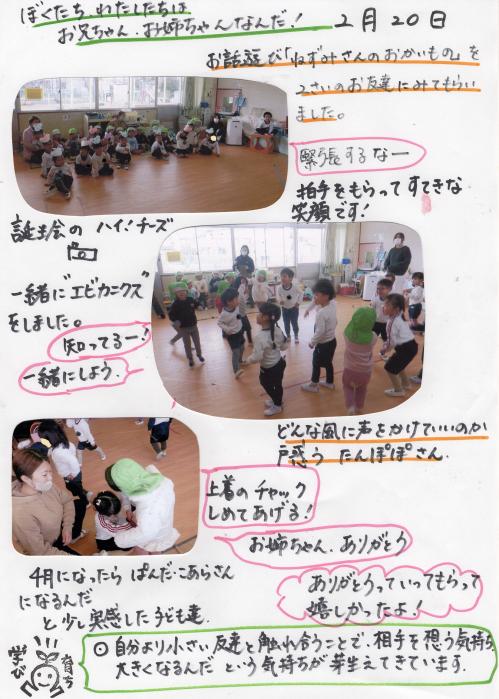 ぼくたち わたしたちは
お兄ちゃん、お姉ちゃんなんだ！
2月20日
お話遊び「ねずみさんのおかいもの」を
2さいのお友達にみてもらい
ました。
緊張するなー
拍手をもらって すてきな
笑顔です！
誕生会の ハイ！チーズ
一緒に"エビカニクス"
をしました。
知ってるー！
一緒にしよう。
どんな風に声をかけていいのか
戸惑う たんぽぽさん。
上着の チャック
しめてあげる！
お姉ちゃん、ありがとう
ありがとうっていってもらって
嬉しかったよ！
4月になったら ぱんだ・こあらさん
になるんだ
と少し実感した子ども達。
学び
育ち
◎ 自分より小さい友達と触れ合うことで、相手を想う気持ち
大きくなるんだ という気持ちが芽生えてきています。